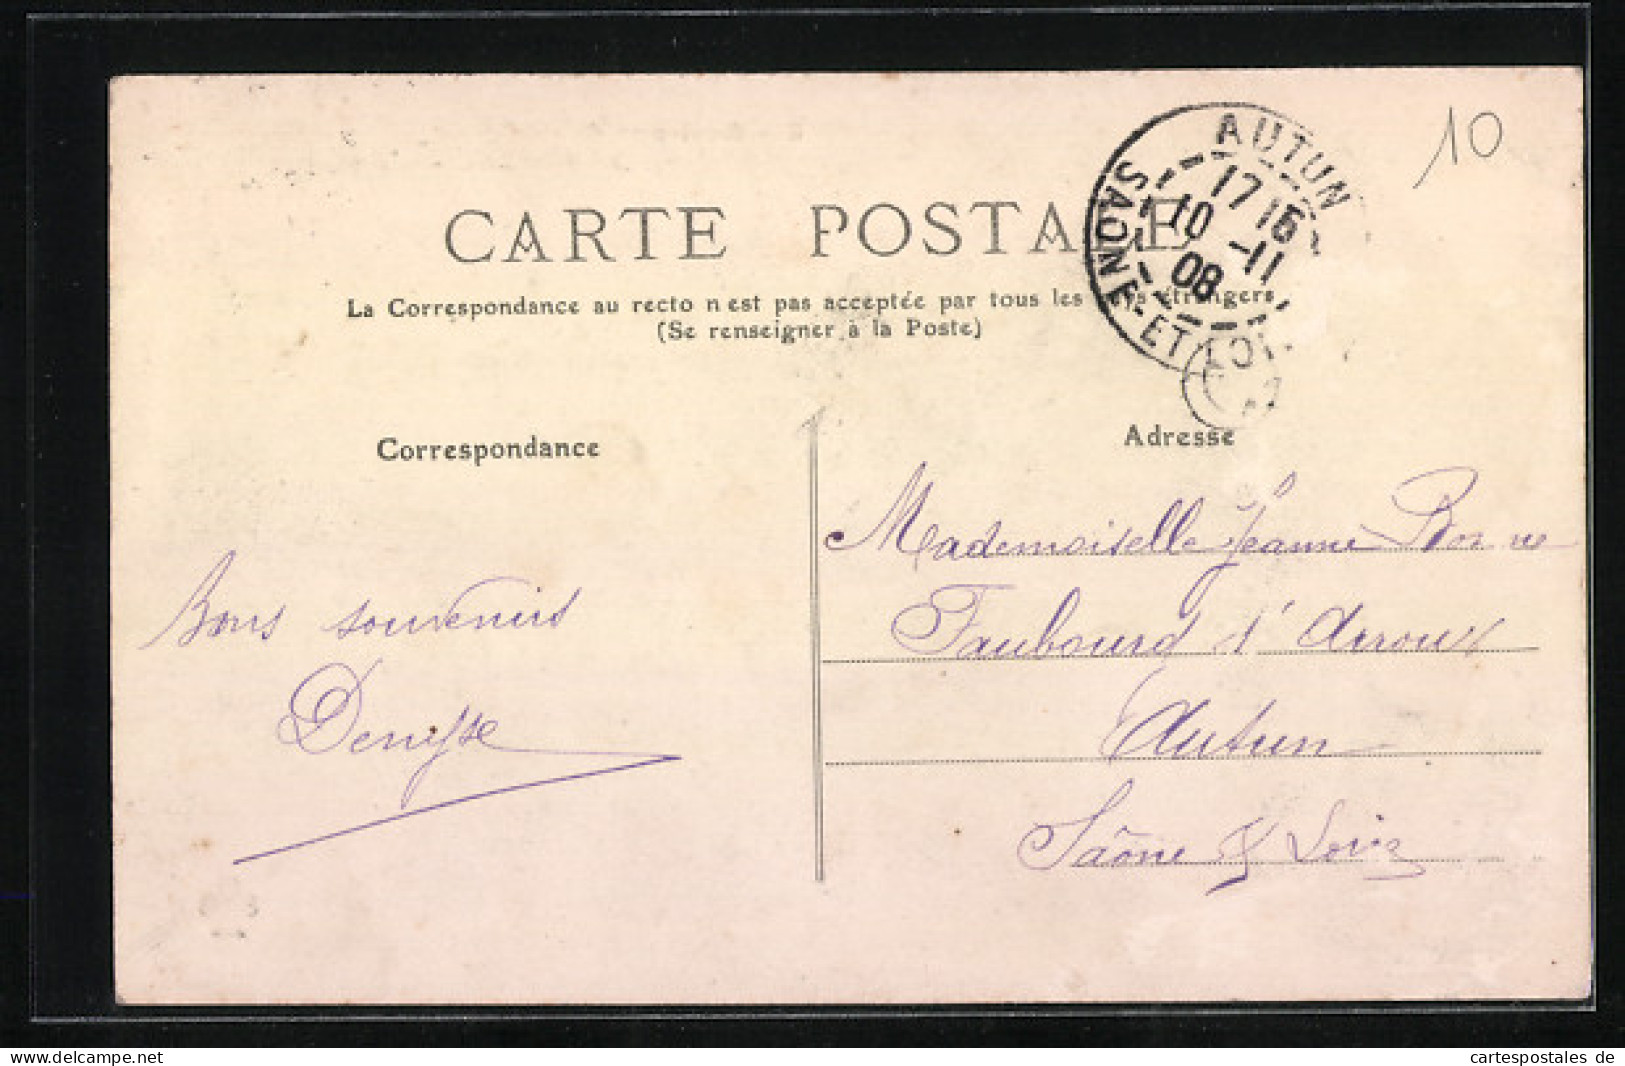 10
AUTUN
17 15
10 -11
08
SAONE-ET-LOI
CARTE POSTALE
La Correspondance au recto n'est pas acceptée par tous les pays étrangers
(Se renseigner à la Poste)
Correspondance
Adresse
Mademoiselle Jeanne
Faubourd d'Arroux
Autun
Saône & Loire
Bons souvenirs
Denyse
cartespostales de